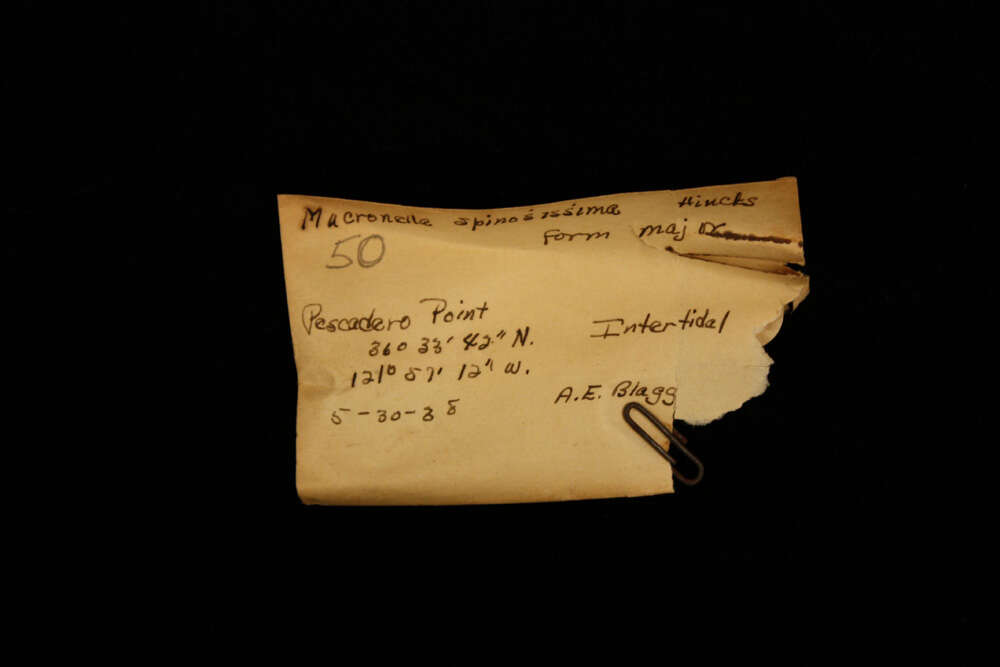 Mucronella spinosissima Hincks
form major
50
Pescadero Point
Intertidal
36° 33' 42" N.
121° 57' 12" W.
A.E. Blagg
5-30-38